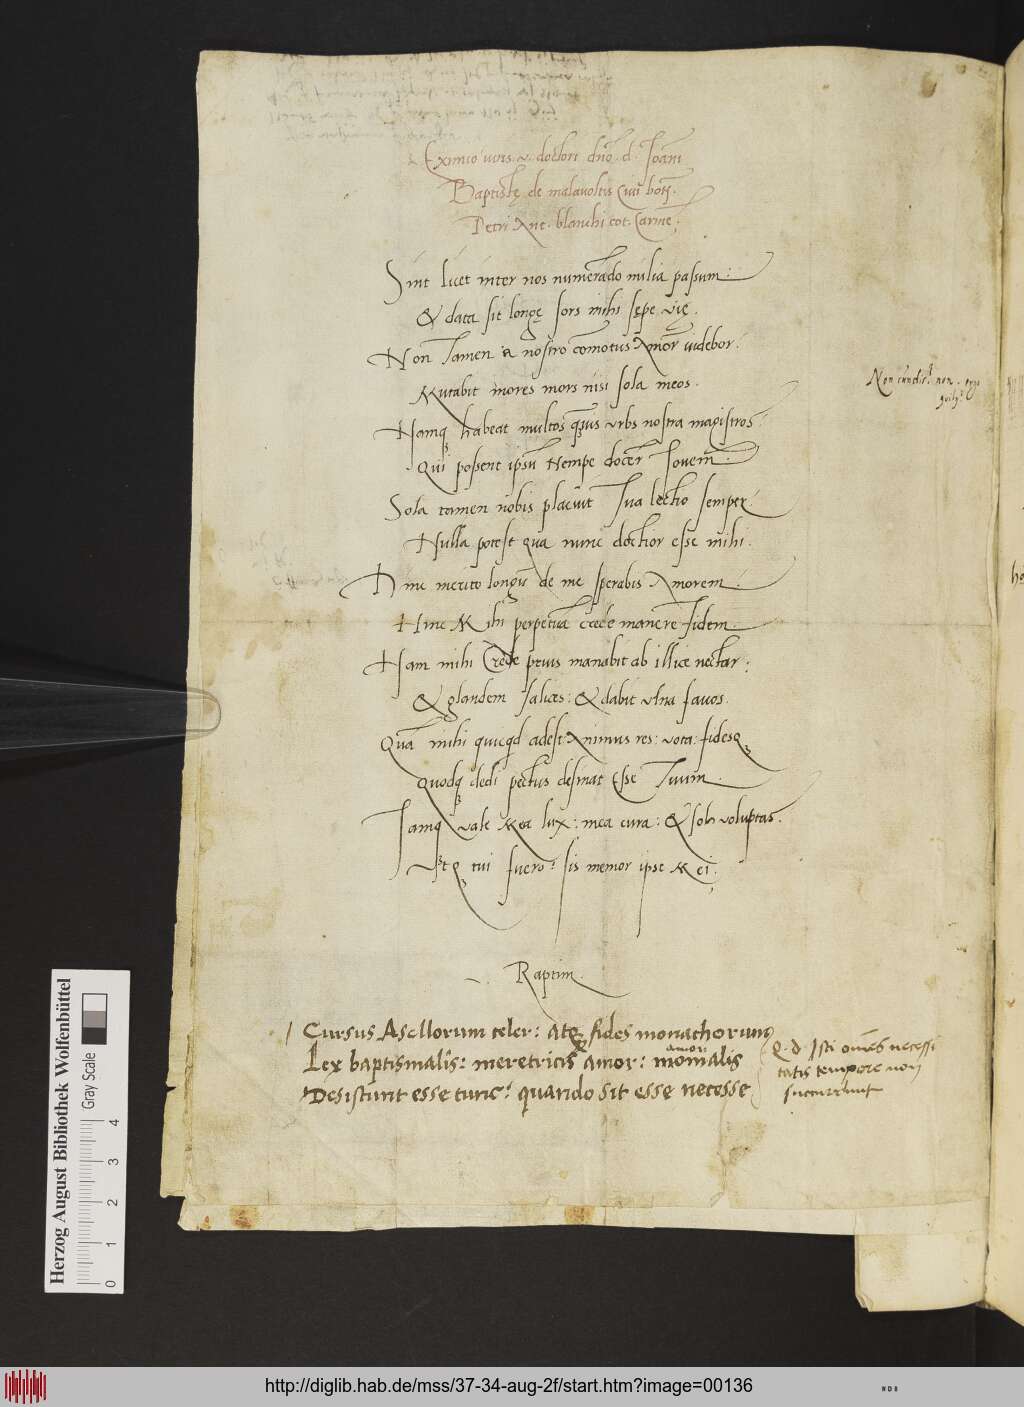 Eximio iuris .v. doctori dño .d. Joãni
Baptistę de malavoltis Civi boñ.
Petri Ant. blanchi cot. Carmẽ;
Sint licet inter nos numerãdo milia passum:
& data sit longę sors mihi sępe vię.
Non Tamen a nostro comotus Amor videbor:
Mutabit mores mors nisi sola meos.
Namq habeat multos qvis Urbs nostra magistros:
Qui possent ipsũ Nempe docer Jovem.
Sola tamen nobis placuit Tua lectio semper
Nulla potest qua nunc doctior esse mihi.
Hinc merito longũ de me sperabis Amorem.
Hinc Mihi perpetuã crede manere fidem.
Nam mihi Crede prius manabit ab illice nectar:
& glandem salices: & dabit vlna favos.
Quã mihi quicqd adest: Animus res: vota: fidesq
Quodq dedi pectus desinat Esse Tuum.
Jamq vale Mea lux: mea cura: & soli voluptas.
Utq tui fuero: sis memor ipse Mei;
Raptim.
Cursus Asellorum celer: Atq fides monachorum
Lex baptismalis: meretricis Amor: monialis
amor:
Desistunt esse tunc: quando sit esse necesse
Q. d. Isti omẽs necessi
tatis tempore non
succurrunt
Herzog August Bibliothek Wolfenbüttel
Gray Scale
0 1 2 3 4
http://diglib.hab.de/mss/37-34-aug-2f/start.htm?image=00136